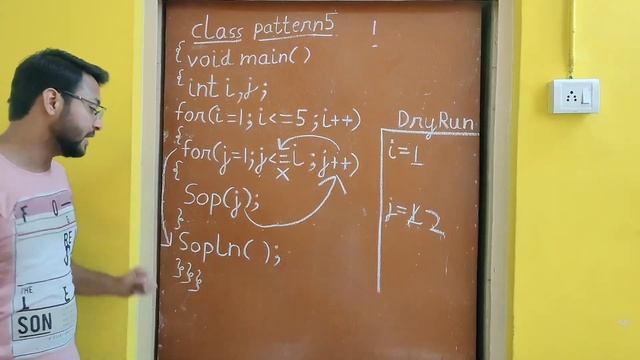 class pattern5
!
{ void main()
{ int i, j;
for(i=1; i<=5 ; i++)
{
for(j=1; j<=i ; j++)
{
x
Sop(j);
}
Sopln( );
}}}
DryRun
i=1
j=1 2
THE
SON